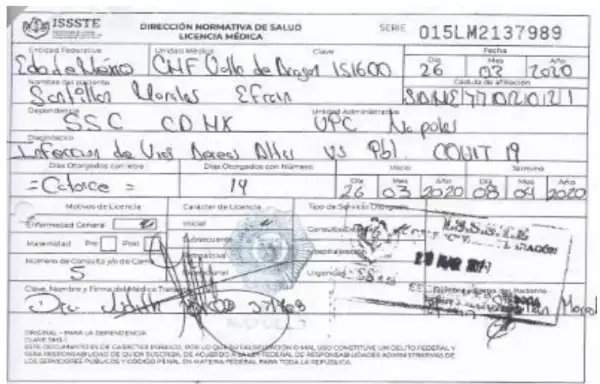 ISSSTE
DIRECCIÓN NORMATIVA DE SALUD
LICENCIA MÉDICA
SERIE 015LM2137989
Entidad Federativa Unidad Médica Clave Fecha
Edo de México CMF Valle de Aragon 151600
Día Mes Año
26 03 2020
Nombre del paciente Cédula de afiliación
Santillan Morales Efrain
Dependencia Unidad Administrativa
SSC CDMX UPC Napoles
Diagnóstico
Infeccion de Vias Aereas Altas VS Pbl. COVIT 19
Días Otorgados con letra Días Otorgados con Número Inicio Término
Día Mes Año Día Mes Año
= Catorce = 14 26 03 2020 08 04 2020
Motivos de Licencia Carácter de Licencia Tipo de Servicio Otorgado
Enfermedad General Inicial Consulta
Maternidad Pre Post Subsecuente Hospitalización
Número de Consulta y/o de Cama Retroactiva
5 Urgencias
I.S.S.S.T.E.
ARAGÓN
MAR
Clave, Nombre y Firma del Médico Tratante
Dra. Judith
ORIGINAL - PARA LA DEPENDENCIA
ESTE DOCUMENTO ES DE CARÁCTER PÚBLICO, POR LO QUE SU FALSIFICACIÓN O MAL USO CONSTITUYE UN DELITO FEDERAL Y
SERÁ RESPONSABILIDAD DE QUIEN SUSCRIBA, DE ACUERDO A LA LEY FEDERAL DE RESPONSABILIDADES ADMINISTRATIVAS DE
LOS SERVIDORES PÚBLICOS Y CÓDIGO PENAL EN MATERIA FEDERAL PARA TODA LA REPÚBLICA.